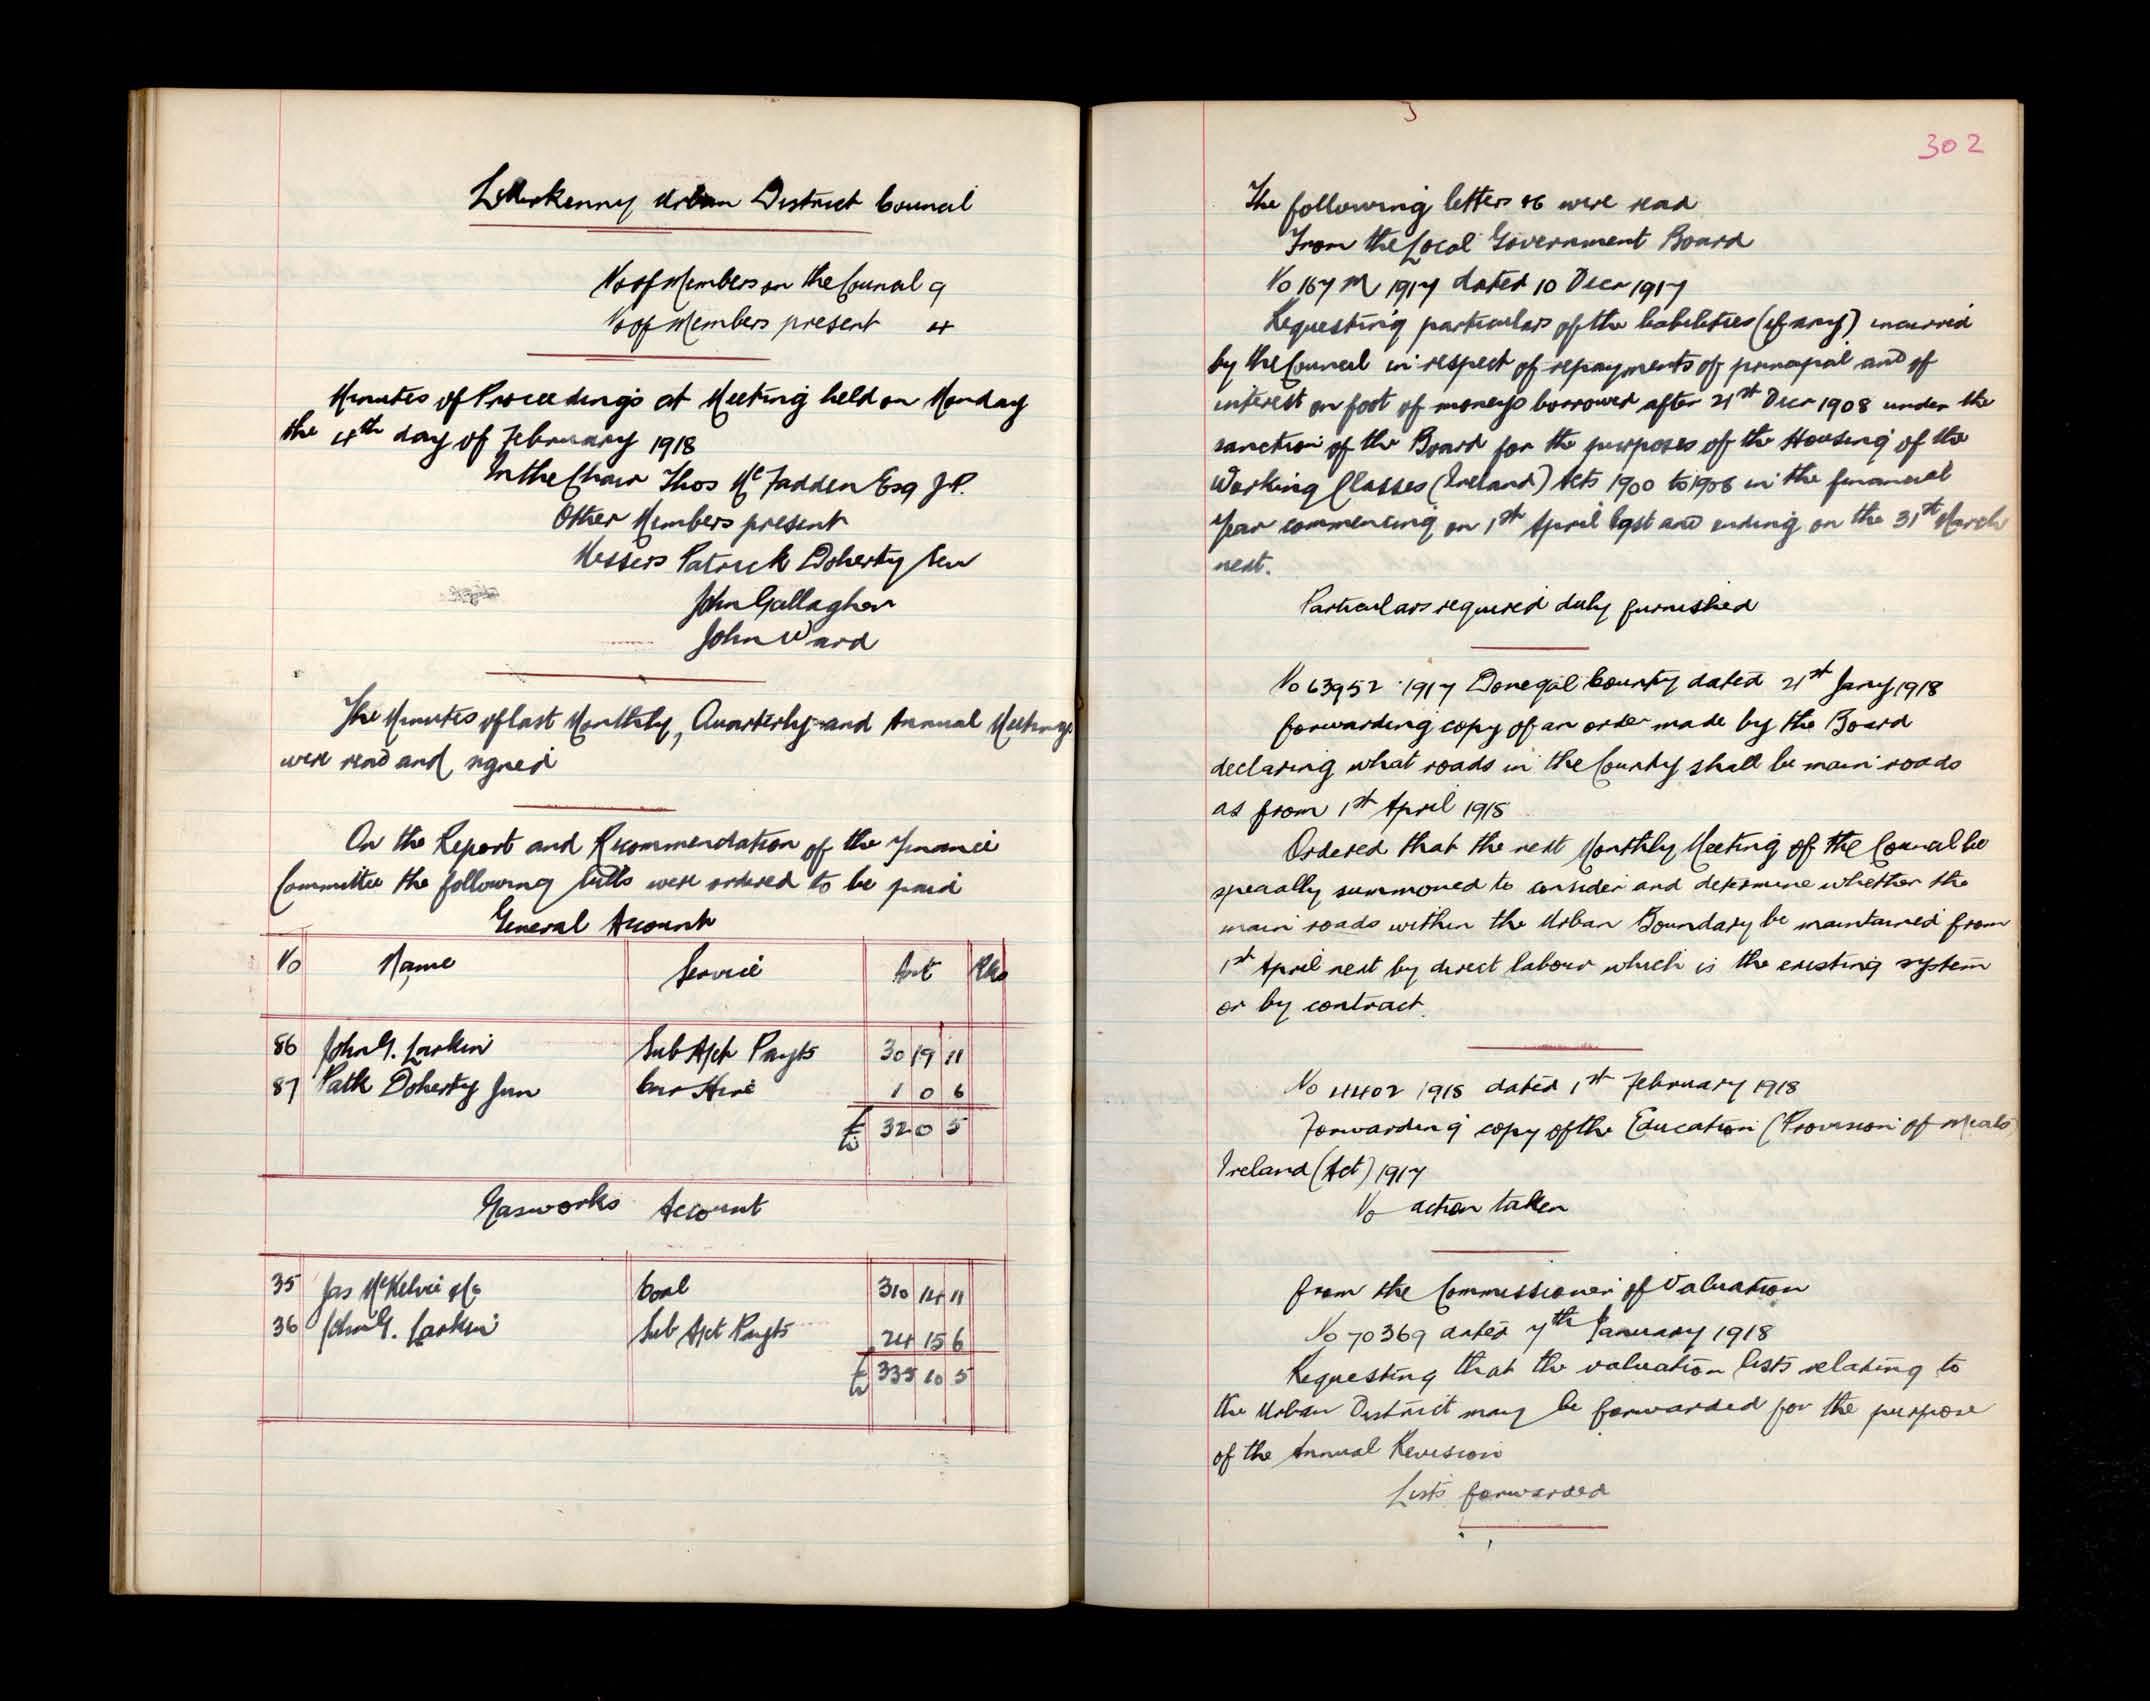 Letterkenny Urban District Council
No of Members on the Council 9
No of Members present 4
Minutes of Proceedings at Meeting held on Monday
the 4th day of February 1918
In the Chair Thos McFadden Esq J.P.
Other Members present
Messers Patrick Doherty Sen
John Gallagher
John Ward
The Minutes of last Monthly, Quarterly and Annual Meetings
were read and signed
On the Report and Recommendation of the Finance
Committee the following bills were ordered to be paid
General Account
No Name Service Amt Rks
86 John G. Larkin Sub Acct Paymts 30 19 11
87 Patk Doherty Jun Car Hire 1 0 6
£ 32 0 5
Gasworks Account
35 Jas McKelvie & Co Coal 310 14 11
36 John G. Larkin Sub Acct Paymts 24 15 6
£ 335 10 5
302
The following letters &c were read
From the Local Government Board
No 167 M 1917 dated 10 Decr 1917
Requesting particulars of the liabilities (if any) incurred
by the Council in respect of repayments of principal and of
interest on foot of moneys borrowed after 21st Decr 1908 under the
sanction of the Board for the purposes of the Housing of the
Working Classes (Ireland) Acts 1900 to 1908 in the financial
Year commencing on 1st April last and ending on the 31st March
next.
Particulars required duly furnished
No 63952 1917 Donegal County dated 21st Jany 1918
forwarding copy of an order made by the Board
declaring what roads in the County shall be main roads
as from 1st April 1918
Ordered that the next Monthly Meeting of the Council be
specially summoned to consider and determine whether the
main roads within the Urban Boundary be maintained from
1st April next by direct labour which is the existing system
or by contract.
No 4402 1918 dated 1st February 1918
Forwarding copy of the Education (Provision of Meals)
Ireland (Act) 1917
No action taken
from the Commissioner of Valuation
No 70369 dated 7th January 1918
Requesting that the valuation lists relating to
the Urban District may be forwarded for the purpose
of the Annual Revision
Lists forwarded